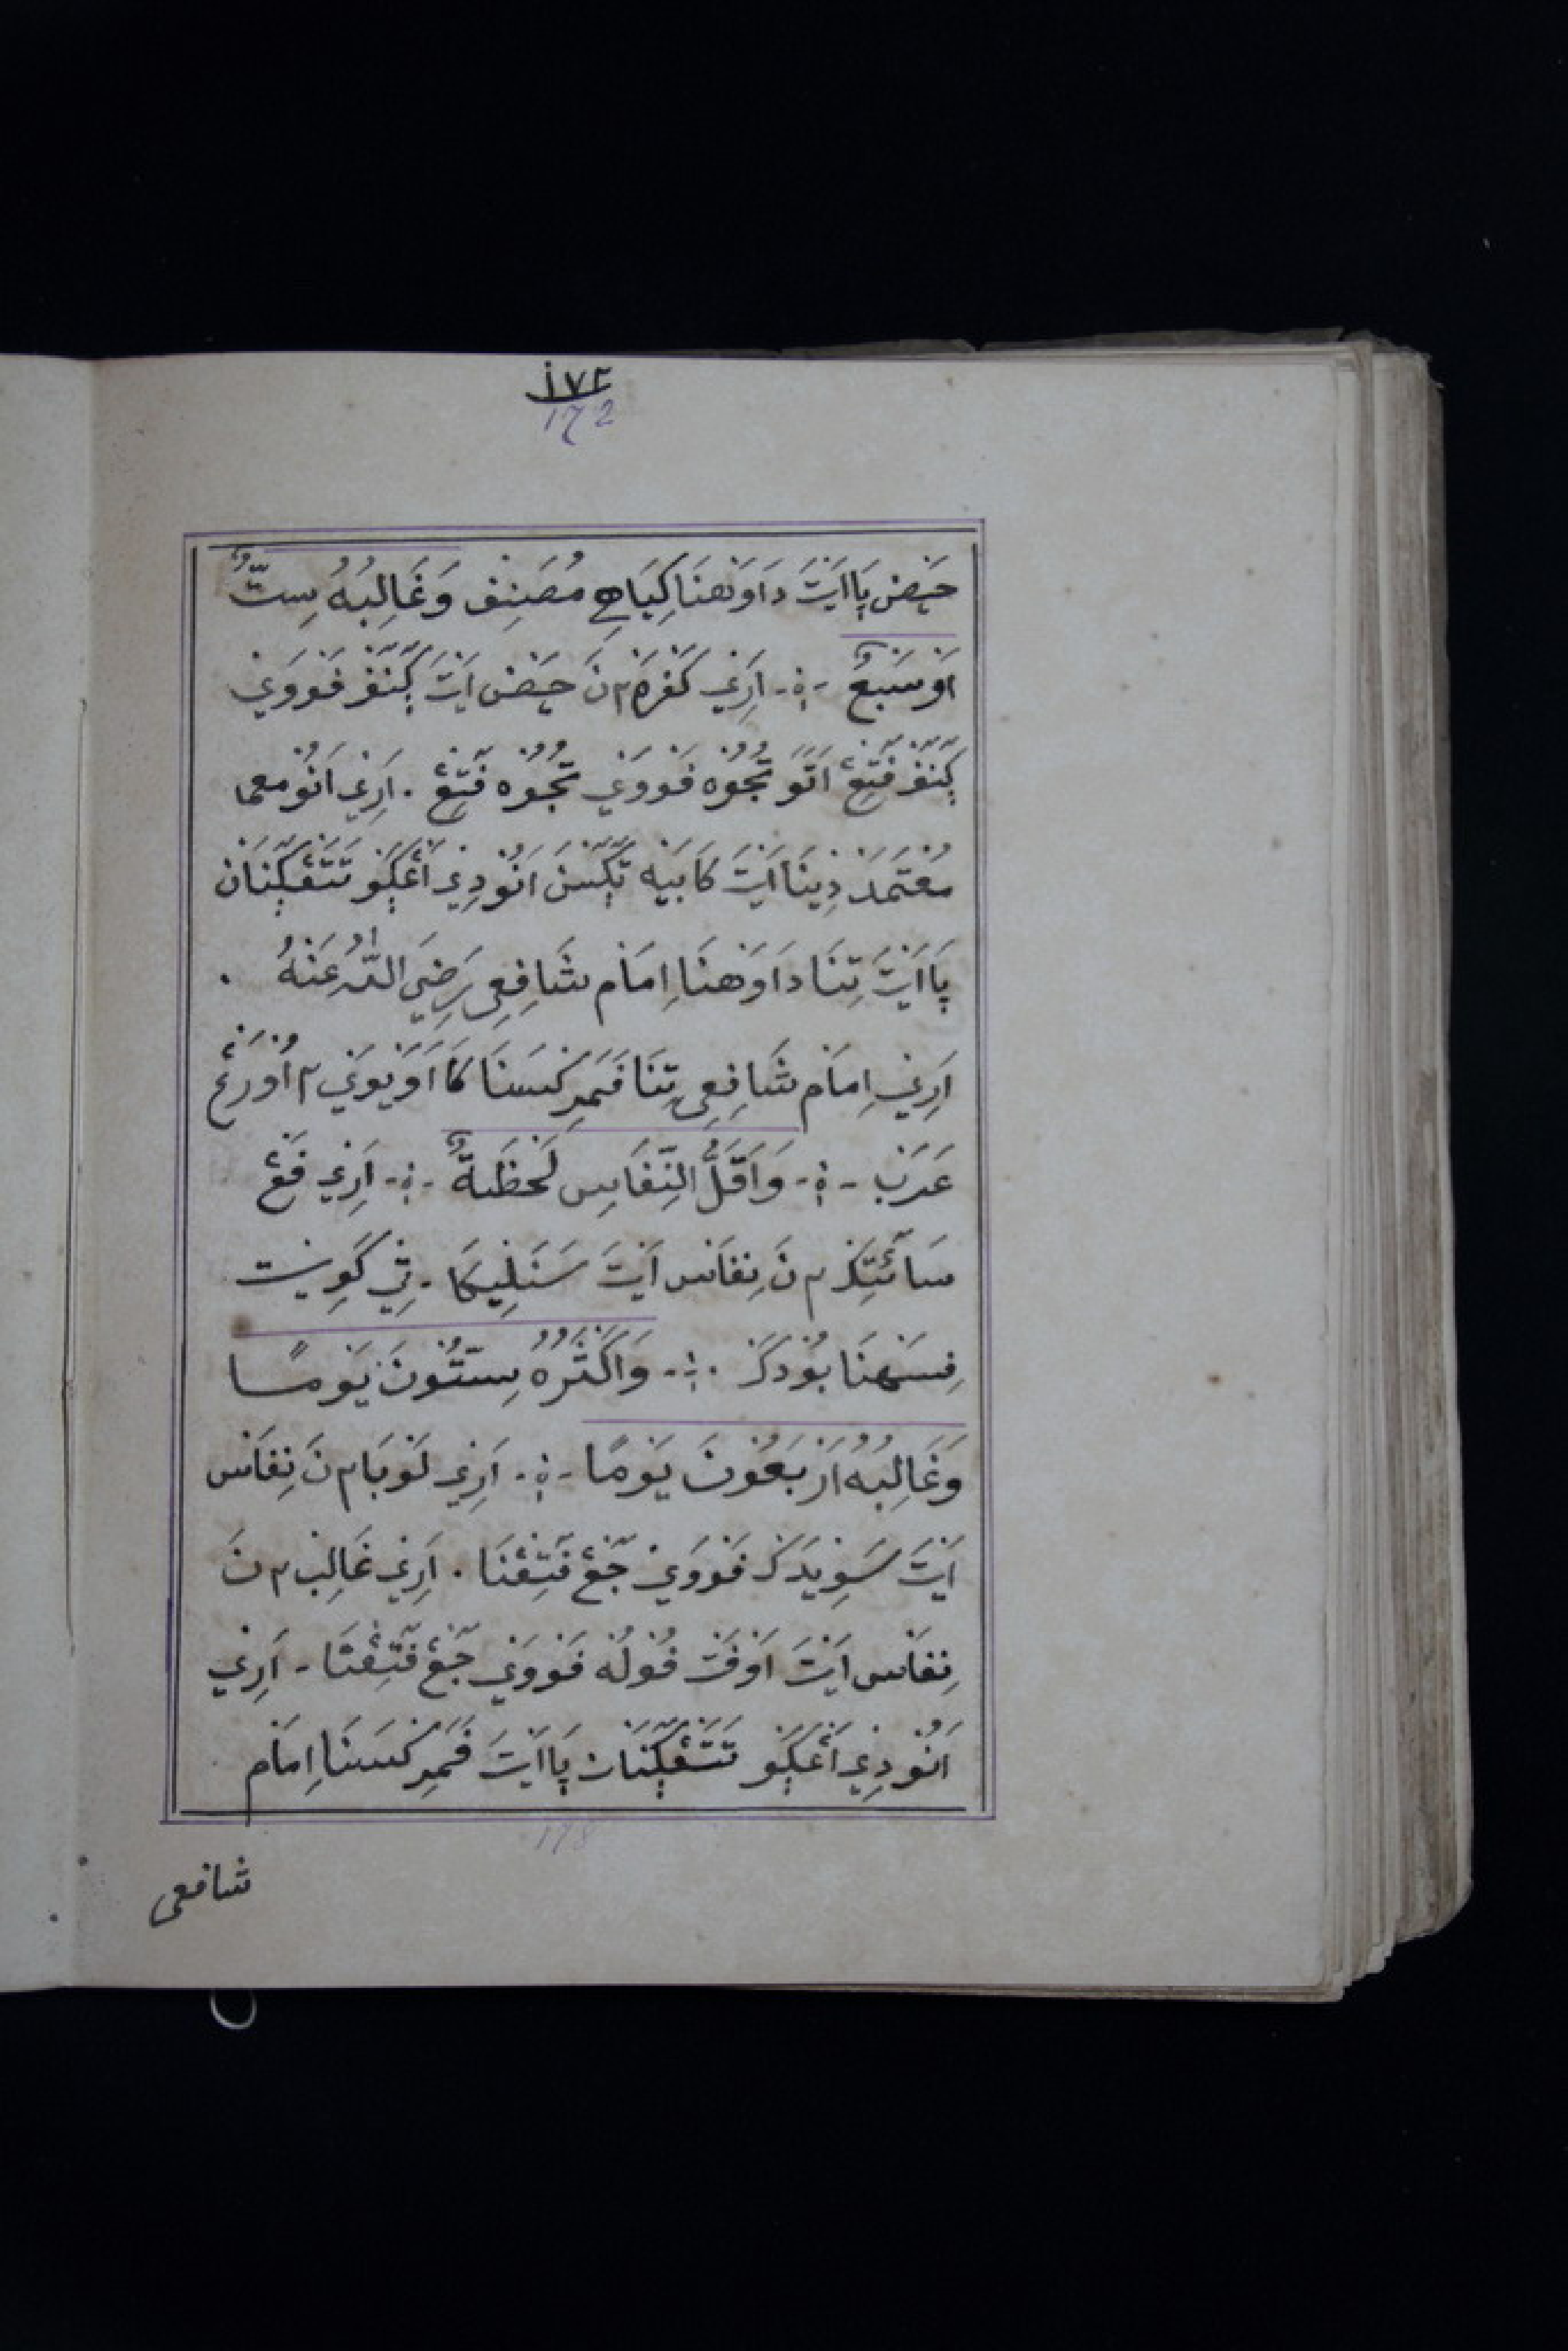 ١٧٢
172
حَيْضْ ݒَااَيْتَ دَاوَنْهنَا كِيَاهِ مُصَنِفْ وَغَالِبُهُ سِتٌّ
اَوْ سَبْعٌ ۔ اَرِنْيْ كَفْرَهْ ٢ نَ حَيْضْ اَيْتَ ڬَنَفْ فَوْوَيْ
ڬَنَفْ فَتِڠْ اَتَوَ تُجُوْه فَوْوَيْ تُجُوْه فَتِڠْ . اَرِنْيْ اَنُوْ معما
مُعْتَمَدْ دِيْنَا اَيْتَ كَابَيْه تَڬَسْنَ اَنُوْدِيْ اَڠْڬَوْ تَتَڤْڬَنَانْ
ݒَااَيْتَ تِنَا دَاوَنْهنَا اِمَامْ شَافِعِى رَضِيَ اللّٰهُ عَنْهُ .
اَرِنْيْ اِمَامْ شَافِعِى تِنَا فَمَرِكْسَنَا كَا اَوَيْوَيْ ٢ اُوْرَڠْ
عَرَبْ ۔ وَاَقَلُّ النِّفَاسِ لَحْظَةٌ ۔ اَرِنْيْ فَڠْ
سَائَتِكْ ٢ نَ نِفَاسْ اَيْتَ سَنَلِيْكَا . تِيْ كَوِيْتْ
بِسَنْهنَا بُوْدَكْ . وَاَكْثَرُهُ سِتُّوْنَ يَوْمًا
وَغَالِبُهُ اَرْبَعُوْنَ يَوْمًا ۔ اَرِنْيْ لَوْبَا ٢ نَ نِفَاسْ
اَيْتَ سَوِيْدَكْ فَوْوَيْ جَڠْ فَتِڠْنَا . اَرِنْيْ غَالِبْ ٢ نَ
نِفَاسْ اَيْتَ اَوْفَتْ فُوْلُه فَوْوَيْ جَڠْ فَتِڠْنَا . اَرِنْيْ
اَنُوْدِيْ اَڠْڬَوْ تَتَڤْڬَنَانْ ݒَااَيْتَ فَمَرِكْسَنَا اِمَامْ
178
شافعى